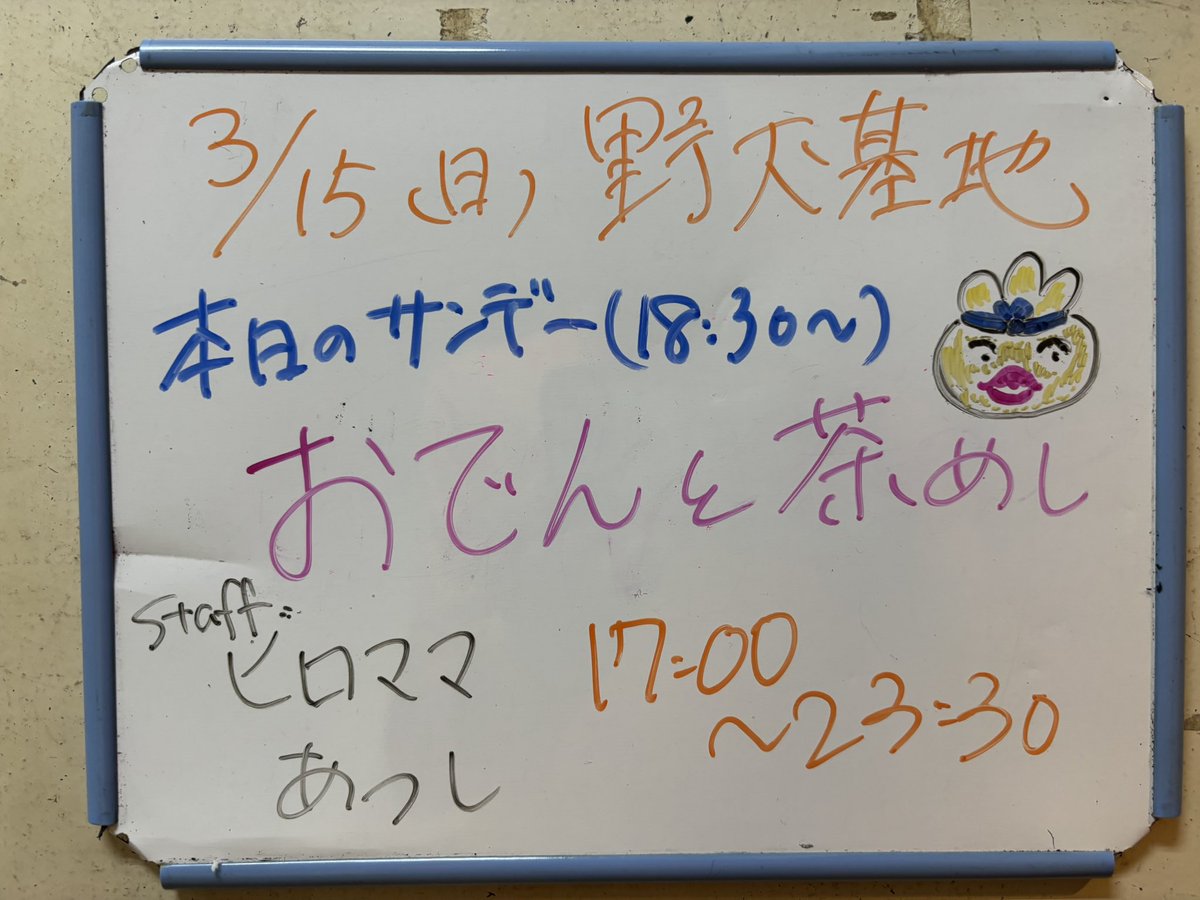 3/15(日)野天基地
本日のサンデー(18:30〜)
おでんと茶めし
staff:
ヒロママ
あつし
17:00
〜23:30